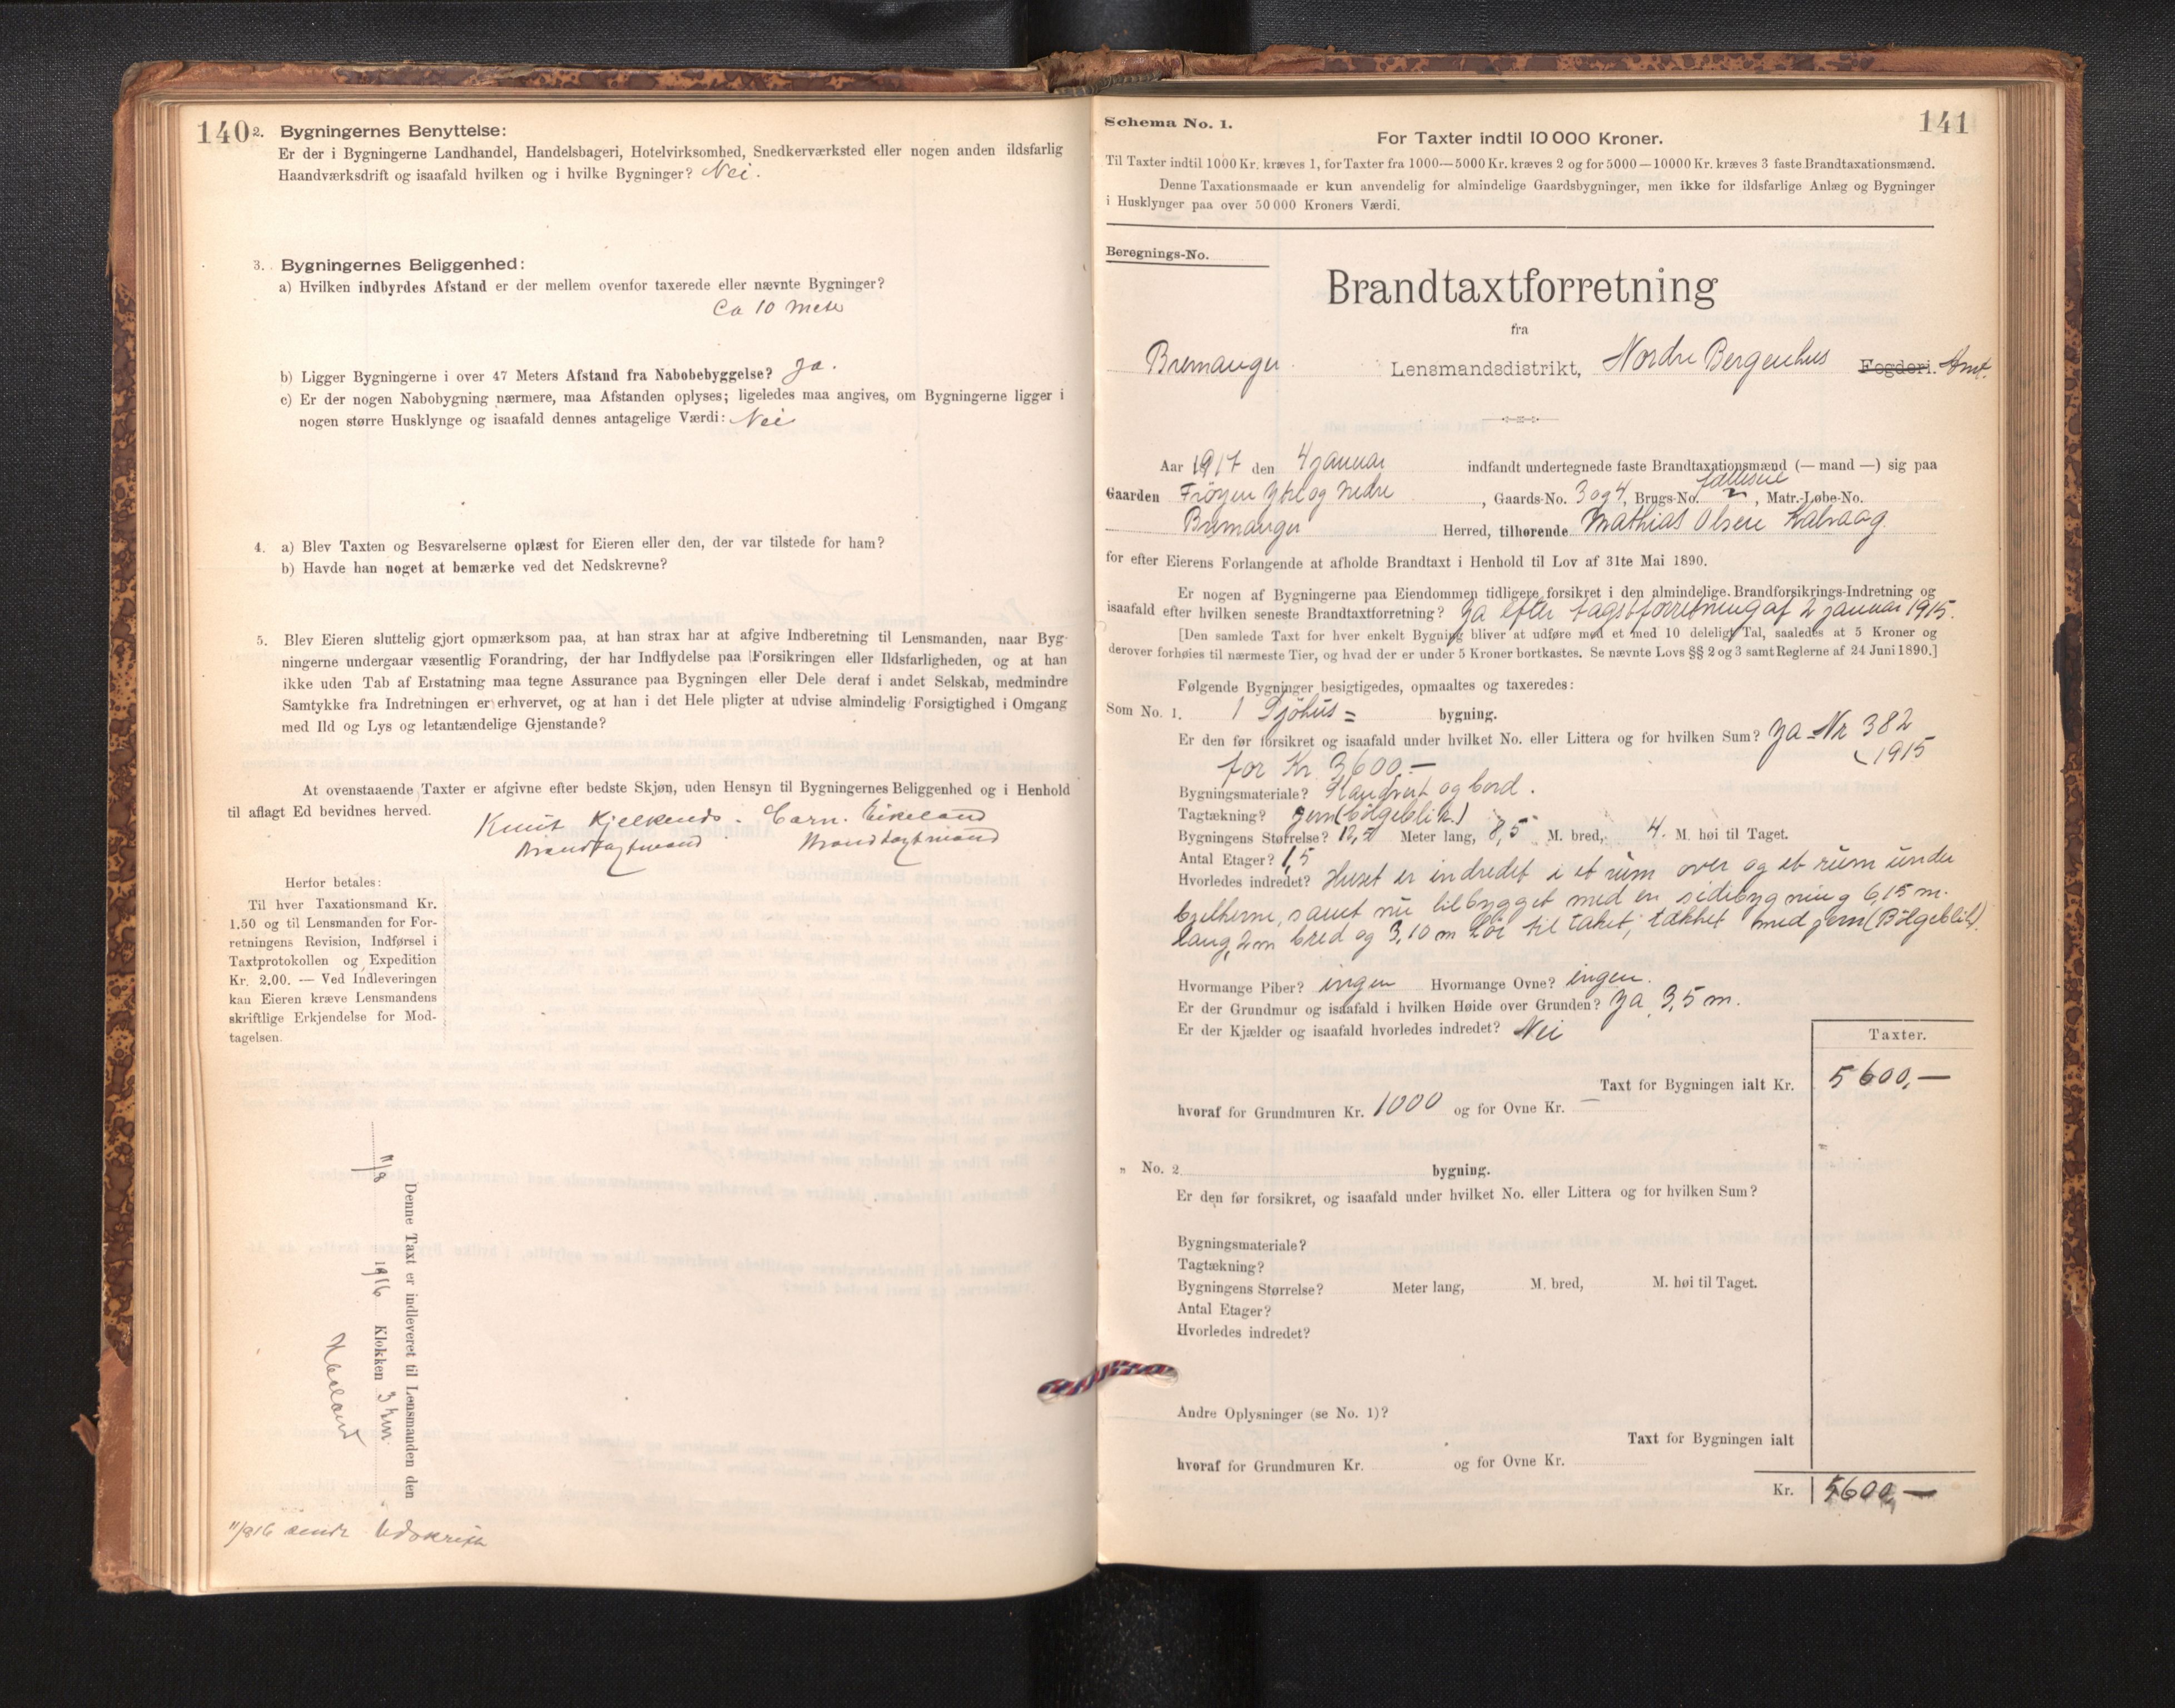 140
2. Bygningernes Benyttelse:
Er der i Bygningerne Landhandel, Handelsbageri, Hotelvirksomhed, Snedkerværksted eller nogen anden ildsfarlig
Haandværksdrift og isaafald hvilken og i hvilke Bygninger? Nei.
3. Bygningernes Beliggenhed:
a) Hvilken indbyrdes Afstand er der mellem ovenfor taxerede eller nævnte Bygninger?
Ca 10 meter
b) Ligger Bygningerne i over 47 Meters Afstand fra Nabobebyggelse? Ja.
c) Er der nogen Nabobygning nærmere, maa Afstanden oplyses; ligeledes maa angives, om Bygningerne ligger i
nogen større Husklynge og isaafald dennes antagelige Værdi: Nei
4. a) Blev Taxten og Besvarelserne oplæst for Eieren eller den, der var tilstede for ham?
b) Havde han noget at bemærke ved det Nedskrevne?
5. Blev Eieren sluttelig gjort opmærksom paa, at han strax har at afgive Indberetning til Lensmanden, naar Byg-
ningerne undergaar væsentlig Forandring, der har Indflydelse paa Forsikringen eller Ildsfarligheden, og at han
ikke uden Tab af Erstatning maa tegne Assurance paa Bygningen eller Dele deraf i andet Selskab, medmindre
Samtykke fra Indretningen er erhvervet, og at han i det Hele pligter at udvise almindelig Forsigtighed i Omgang
med Ild og Lys og letantændelige Gjenstande?
At ovenstaaende Taxter er afgivne efter bedste Skjøn, uden Hensyn til Bygningernes Beliggenhed og i Henhold
til aflagt Ed bevidnes herved.
Knut Kjelkenes. Carn. Eikeland
Brandtaxtmand Brandtaxtmand
Herfor betales:
Til hver Taxationsmand Kr.
1.50 og til Lensmanden for For-
retningens Revision, Indførsel i
Taxtprotokollen og Expedition
Kr. 2.00. — Ved Indleveringen
kan Eieren kræve Lensmandens
skriftlige Erkjendelse for Mod-
tagelsen.
Denne Taxt er indleveret til Lensmanden den
11/8 1916 Klokken 3 Em.
11/8 16 sendt Udskrift
141
Schema No. 1.
For Taxter indtil 10 000 Kroner.
Til Taxter indtil 1000 Kr. kræves 1, for Taxter fra 1000—5000 Kr. kræves 2 og for 5000—10000 Kr. kræves 3 faste Brandtaxationsmænd.
Denne Taxationsmaade er kun anvendelig for almindelige Gaardsbygninger, men ikke for ildsfarlige Anlæg og Bygninger
i Husklynger paa over 50 000 Kroners Værdi.
Beregnings-No.
Brandtaxtforretning
fra
Bremanger Lensmandsdistrikt, Nordre Bergenhus Fogderi. Amt.
Aar 1917 den 4 januar indfandt undertegnede faste Brandtaxationsmænd (— mand —) sig paa
Gaarden Frøyen Ytre og nedre, Gaards-No. 3 og 4, Brugs-No. fælleseie, Matr.-Løbe-No.
Bremanger Herred, tilhørende Mathias Olsen Kalvaag
for efter Eierens Forlangende at afholde Brandtaxt i Henhold til Lov af 31te Mai 1890.
Er nogen af Bygningerne paa Eiendommen tidligere forsikret i den almindelige Brandforsikrings-Indretning og
isaafald efter hvilken seneste Brandtaxtforretning? Ja efter tagstforretning af 2 januar 1915.
[Den samlede Taxt for hver enkelt Bygning bliver at udføre med et med 10 deleligt Tal, saaledes at 5 Kroner og
derover forhøies til nærmeste Tier, og hvad der er under 5 Kroner bortkastes. Se nævnte Lovs §§ 2 og 3 samt Reglerne af 24 Juni 1890.]
Følgende Bygninger besigtigedes, opmaaltes og taxeredes:
Som No. 1. 1 Sjøhus = bygning.
Er den før forsikret og isaafald under hvilket No. eller Littera og for hvilken Sum? Ja - Nr 382
1915
for Kr 3,600,-
Bygningsmateriale? Standverk og bord.
Tagtækning? Jern (bölgeblik.)
Bygningens Størrelse? 12,5 Meter lang, 8,5 M. bred, 4. M. høi til Taget.
Antal Etager? 1,5
Hvorledes indredet? Huset er indredet i et rum over og et rum under
bjelkerne, samt nu tilbygget med en sidebygning 6,15 m.
lang, 2m bred og 3,10 m høi til taket, tækket med jern (Bölgeblik).
Hvormange Piber? ingen Hvormange Ovne? ingen.
Er der Grundmur og isaafald i hvilken Høide over Grunden? Ja, 3,5 m.
Er der Kjælder og isaafald hvorledes indredet? Nei
Taxter.
Taxt for Bygningen ialt Kr. 5600,—
hvoraf for Grundmuren Kr. 1000 og for Ovne Kr. —
" No. 2 bygning.
Er den før forsikret, og isaafald under hvilket No. eller Littera og for hvilken Sum?
Bygningsmateriale?
Tagtækning?
Bygningens Størrelse? Meter lang, M. bred, M. høi til Taget.
Antal Etager?
Hvorledes indredet?
Andre Oplysninger (se No. 1)?
Taxt for Bygningen ialt
hvoraf for Grundmuren Kr. og for Ovne Kr.
Kr. 5600,—